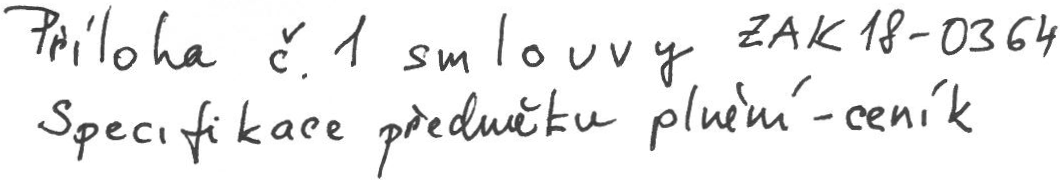 Příloha č. 1 smlouvy ZAK 18-0364
Specifikace předmětu plnění - ceník